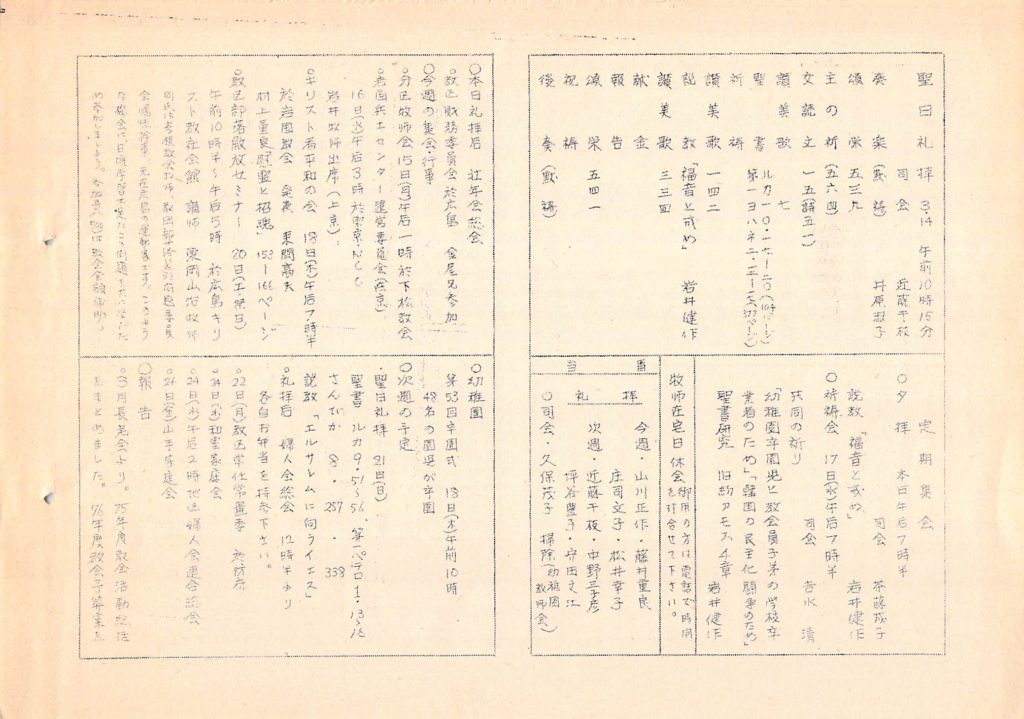 聖日礼拝 3.14 午前10時15分
司会 近藤千枝
奏楽(黙祷) 井原淑子
頌栄 五三九
主の祈(五六四)
交読文 一五(詩五一)
讃美歌 七
聖書 ルカ一〇・一七~二〇
祈祷
讃美歌 一四二
説教 「福音と戒め」 岩井健作
讃美歌 三三四
献金
報告
頌栄 五四一
祝祷
後奏(黙祷)
定期集会
○夕拝 本日午后7時半
司会
説教 「福音と戒め」 岩井健作
○祈祷会 17日(水)午后7時半
司会 吉水 清
共同の祈り
「幼稚園卒園児と教会員子弟の学校卒
業者のため」「韓国の民主化闘争のため」
聖書研究 旧約アモス4章 岩井健作
牧師在宅日 休会(御用の方は電話で時間
を打合せて下さい。
当番
礼拝
今週・山川正作・藤井重良
庄司文子・松井幸子
次週・近藤千枝・中野三子彦
坪谷豊子・守田文江
○司会・久保茂子 掃除(幼稚園
教師会)
○本日礼拝后 壮年会総会
○教区財務委員会 於広島 金尾兄参加
○今週の集会・行事
○分区牧師会 15日(月)午后一時 於下松教会
○岩国兵士センター運営委員会(東京)
16日(火)午后3時 於東京・NCC
岩井牧師出席(上京)
○キリスト者平和の会 18日(木)午后7時半
於岩国教会 発表 東間高夫
村上重良「慰霊と招魂」153~166ページ
○教区部落解放セミナー 20日(土・祭日)
午前10時半~午后5時 於広島キリ
スト教社会館 講師 東岡山治牧師
○幼稚園
第53回卒園式 18日(木)午前10時
48名の園児が卒園
○次週の予定
・聖日礼拝 21日(日)
聖書 ルカ9・51~56、第一ペテロ1・13~16
さんびか 8・257・338
説教 「エルサレムに向うイエス」
○礼拝后 婦人会総会 12時半より
各自お弁当を持参下さい。
○22日(月)教区常任常置委 於防府
○24日(水)和室家庭会
○24日(水)午后2時 地区婦人会連合総会
○26日(金)
○報告
○3月長老会より。75年度教会活動総括
をまとめました。76年度教会予算案を